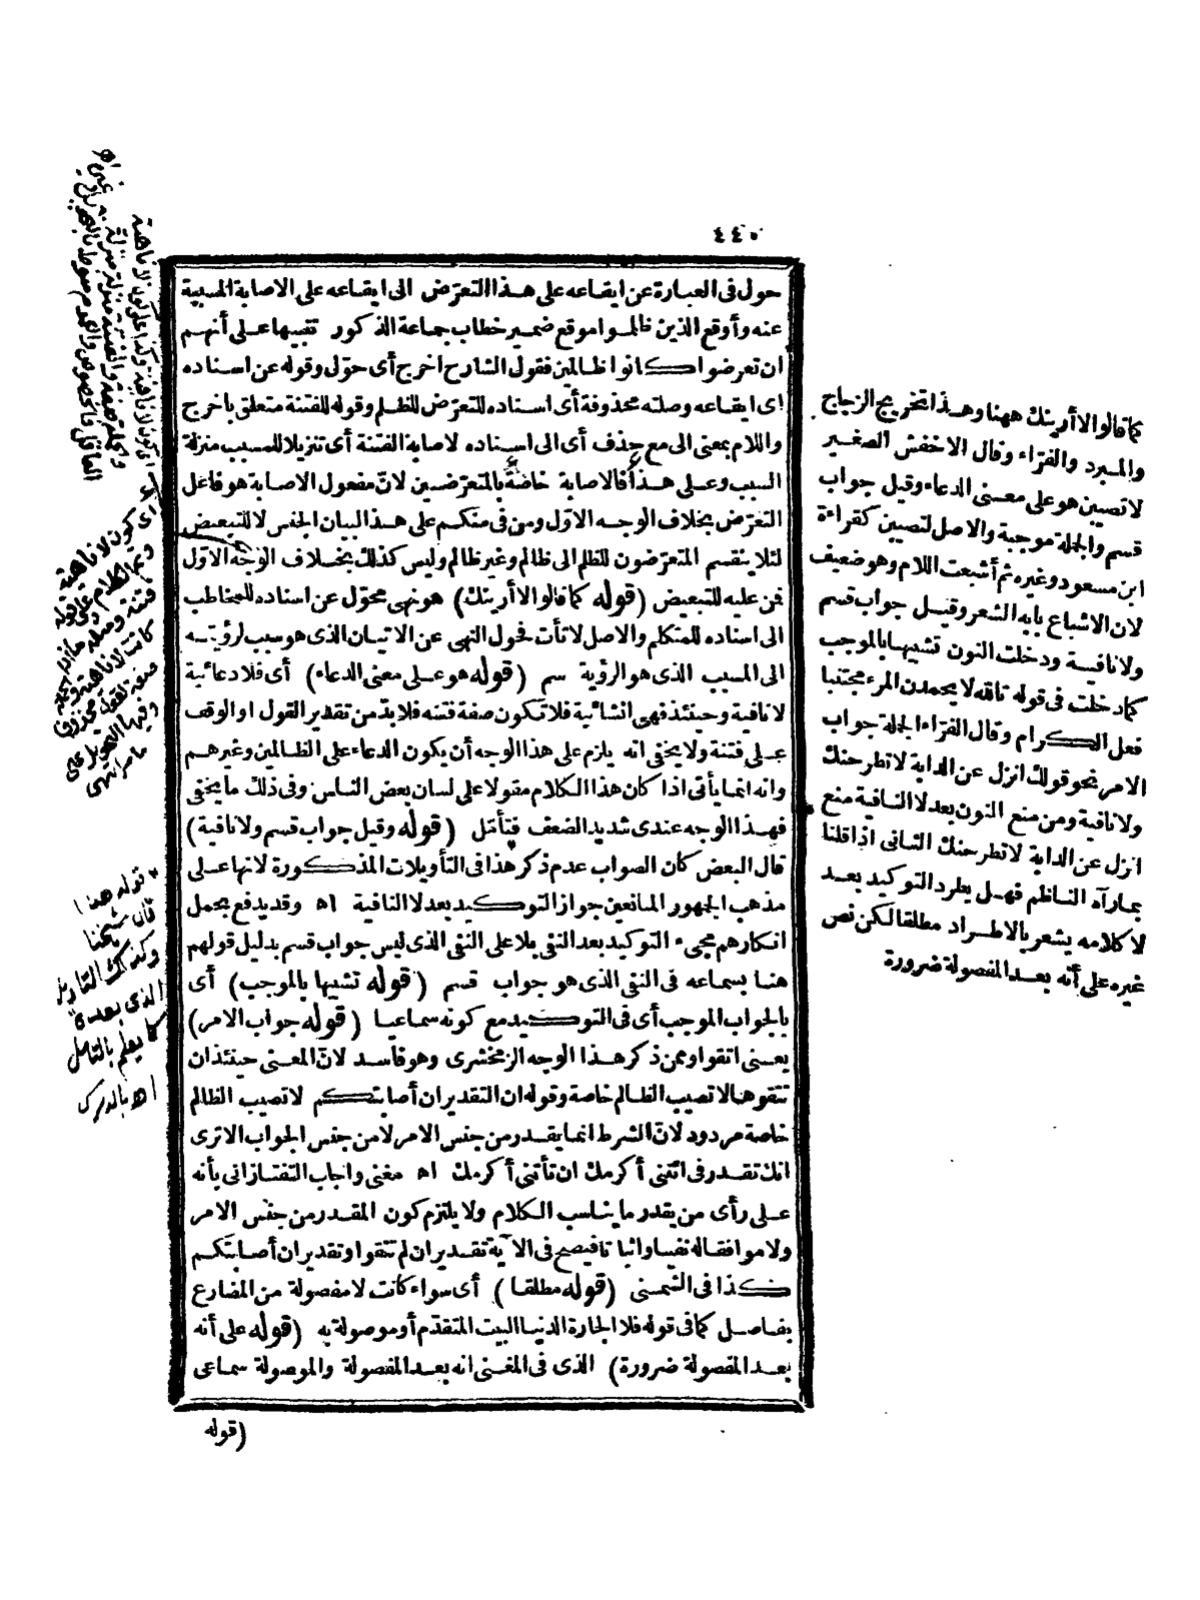 ٤٤٠
حول فى العبارة عن ايقاعه على هذا التعرّض الى ايقاعه على الاصابة المسببة
عنه وأوقع الذين ظلموا موقع ضمير خطاب جماعة الذكور تنبيها على أنهم
ان تعرضوا كانوا ظالمين فقول الشارح اخرج أى حوّل وقوله عن اسناده
أى ايقاعه وصلته محذوفة أى اسناده للتعرّض للظلم وقوله للفتنة متعلق باخرج
واللام بمعنى الى مع حذف أى الى اسناده لاصابة الفتنة أى تنزيلا للمسبب منزلة
السبب وعلى هذا فالاصابة خاصة بالمتعرّضين لانّ مفعول الاصابة هو فاعل
التعرّض بخلاف الوجه الاوّل ومن فى منكم على هذا لبيان الجنس لا للتبعيض
لئلا ينقسم المتعرّضون للظلم الى ظالم وغير ظالم وليس كذلك بخلاف الوجه الاوّل
فمن عليه للتبعيض (قوله كما قالوا لا أرينك) هو نهى محوّل عن اسناده للمخاطب
الى اسناده للمتكلم والاصل لا تأت فحول النهى عن الاتيان الذى هو سبب لرؤيته
الى المسبب الذى هو الرؤية سم (قوله هو على معنى الدعاء) أى فلا دعائية
لا نافية وحينئذ فهى انشائية فلا تكون صفة فتنه فلا بدّ من تقدير القول او الوقف
على فتنة ولا يخفى انه يلزم على هذا الوجه أن يكون الدعاء على الظالمين وغيرهم
وانه انما يأتى اذا كان هذا الكلام مقولا على لسان بعض الناس وفى ذلك ما يخفى
فهذا الوجه عندى شديد الضعف فتأمّل (قوله وقيل جواب قسم ولا نافية)
قال البعض كان الصواب عدم ذكر هذا فى التأويلات المذكورة لانها على
مذهب الجهور المانعين جواز التوكيد بعد لا النافية اه وقد يدفع بحمل
انكارهم مجىء التوكيد بعد النفى بلا على النفى الذى ليس جواب قسم بدليل قولهم
هنا بسماعه فى النفى الذى هو جواب قسم (قوله تشبيها بالموجب) أى
بالجواب الموجب أى فى التوكيد مع كونه سماعيا (قوله جواب الامر)
يعنى اتقوا وممن ذكر هذا الوجه الزمخشرى وهو فاسد لانّ المعنى حينئذ ان
تتقوها لا تصيب الظالم خاصة وقوله ان التقدير ان أصابتكم لا تصيب الظالم
خاصة مردود لانّ الشرط انما يقدر من جنس الامر لا من جنس الجواب الا ترى
انك تقدر فى ائتنى أكرمك ان تأتنى أكرمك اه مغنى واجاب التفتازانى بأنه
على رأى من يقدر ما يناسب الكلام ولا يلتزم كون المقدر من جنس الامر
ولا موافقا له نفيا واثباتا فيصح فى الآية تقدير ان لم تتقوا وتقدير ان أصابتكم
كذا فى الشمنى (قوله مطلقا) أى سواء كانت لا مفصولة من المضارع
بفاصل كما فى قوله فلا الجارة الدنيا البيت المتقدّم أو موصولة به (قوله على أنه
بعد المفصولة ضرورة) الذى فى المغنى انه بعد المفصولة والموصولة سماعى
(قوله
كما قالوا لا أرينك ههنا وهذا تخريج الزجاج
والمبرد والفرّاء وقال الاخفش الصغير
لا تصيبن هو على معنى الدعاء وقيل جواب
قسم والجملة موجبة والاصل لتصيبن كقراءة
ابن مسعود وغيره ثم أشبعت اللام وهو ضعيف
لان الاشباع بابه الشعر وقيل جواب قسم
ولا نافية ودخلت النون تشبيها بالموجب
كما دخلت فى قوله تالله لا يحمدن المرء مجتنبا
فعل الكرام وقال الفرّاء الجملة جواب
الامر نحو قولك انزل عن الدابة لا تطرحنك
ولا نافية ومن منع النون بعد لا النافية منع
انزل عن الدابة لا تطرحنك الثانى اذا قلنا
بما رآه الناظم فهل يطرد التوكيد بعد
لا كلامه يشعر بالاطراد مطلقا لكن نص
غيره على أنه بعد المفصولة ضرورة
أى كون لا ناهية
قوله هذا
قال شيخنا
وكذلك التأويل
الذى بعده
كما يعلم بالتأمل